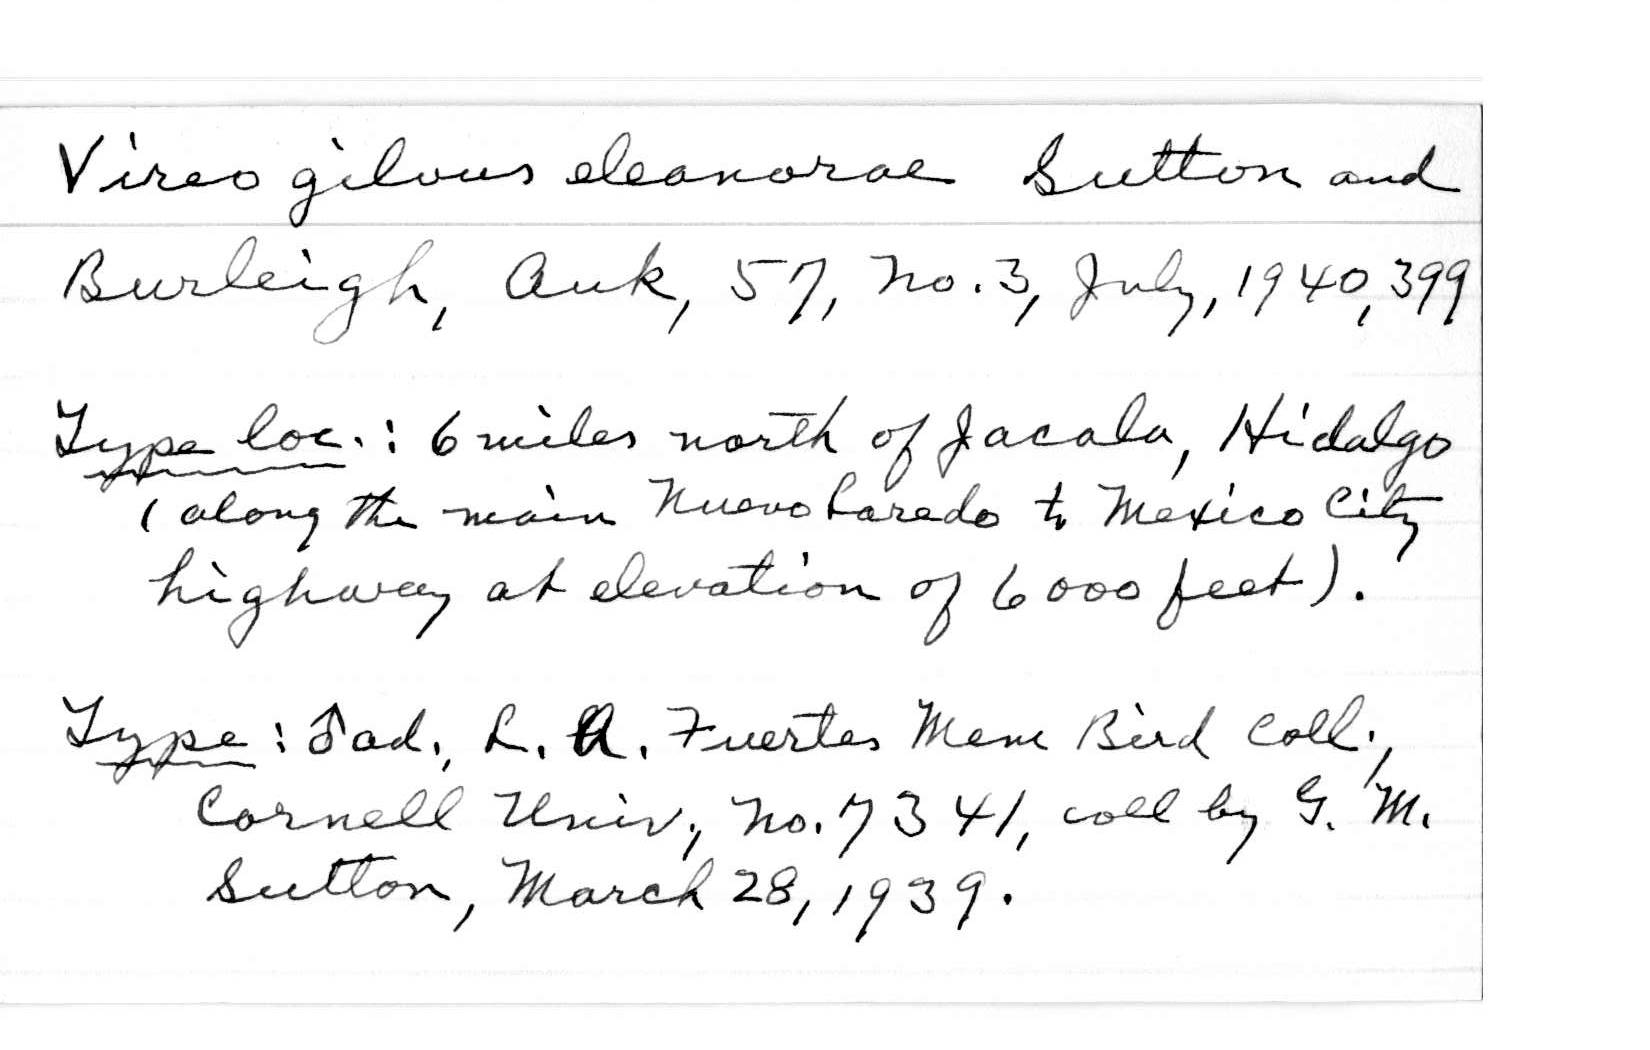 Vireo gilvus eleanorae Sutton and
Burleigh, Auk, 57, No. 3, July, 1940, 399
Type loc.: 6 miles north of Jacala, Hidalgo
(along the main Nuevo Laredo to Mexico City
highway at elevation of 6000 feet).
Type: ♂ ad., L. A. Fuertes Mem Bird Coll.,
Cornell Univ., No. 7341, coll by G. M.
Sutton, March 28, 1939.